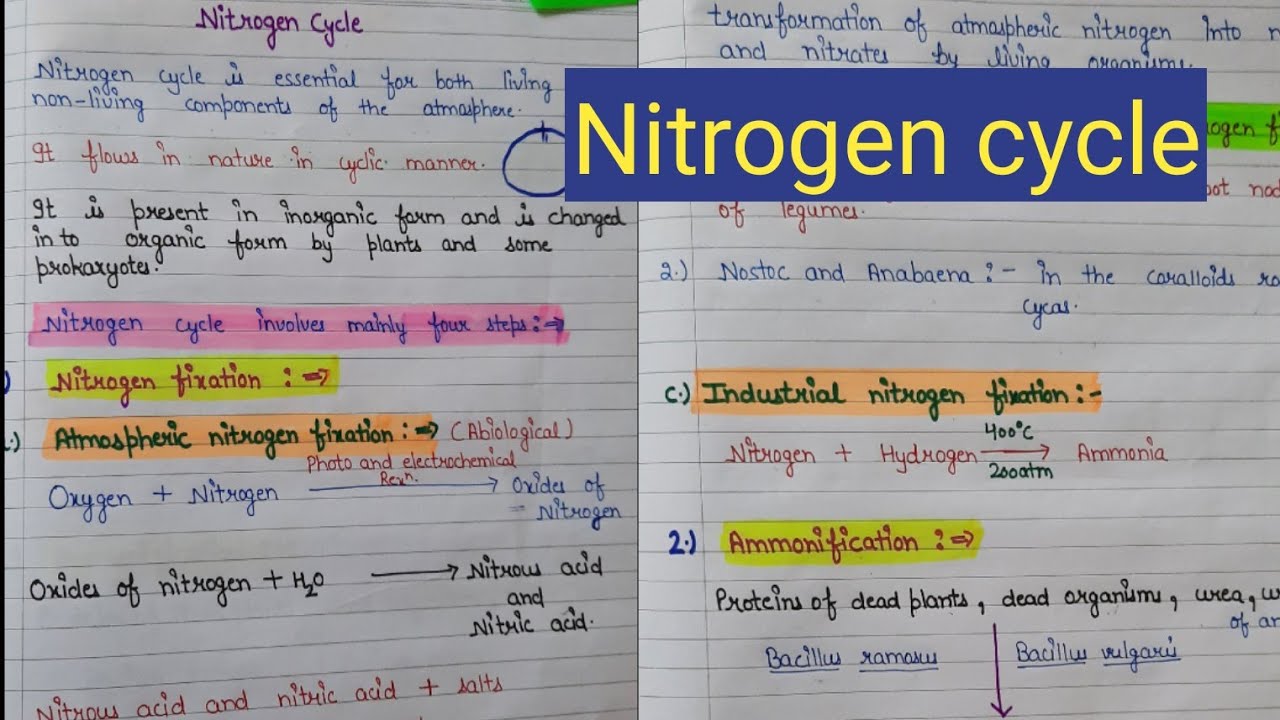 Nitrogen Cycle
Nitrogen cycle is essential for both living
non-living components of the atmosphere.
It flows in nature in cyclic manner.
It is present in inorganic form and is changed
in to organic form by plants and some
prokaryotes.
Nitrogen cycle involves mainly four steps:⇒
Nitrogen fixation :⇒
Atmospheric nitrogen fixation:⇒ (Abiological)
Photo and electrochemical
Rexn.
Oxygen + Nitrogen → Oxides of
Nitrogen
Oxides of nitrogen + H₂O → Nitrous acid
and
Nitric acid.
Nitrous acid and nitric acid + salts
transformation of atmospheric nitrogen into
and nitrates by living organisms.
Nitrogen cycle
of legumes.
2.) Nostoc and Anabaena :- in the caralloids
cycas.
C.) Industrial nitrogen fixation:-
400°C
Nitrogen + Hydrogen → Ammonia
200atm
2.) Ammonification :⇒
Proteins of dead plants, dead organisms, urea,
of
Bacillus ramosus Bacillus vulgaris